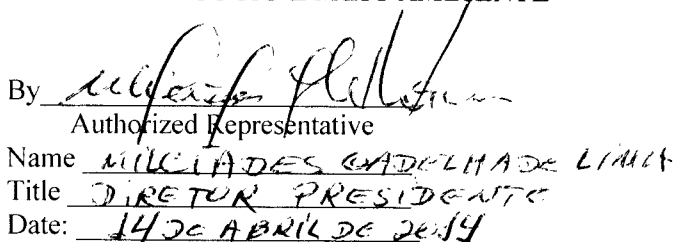 By
Authorized Representative
Name MILCIADES GADELHA DE LIMA
Title DIRETOR PRESIDENTE
Date: 14 DE ABRIL DE 2014